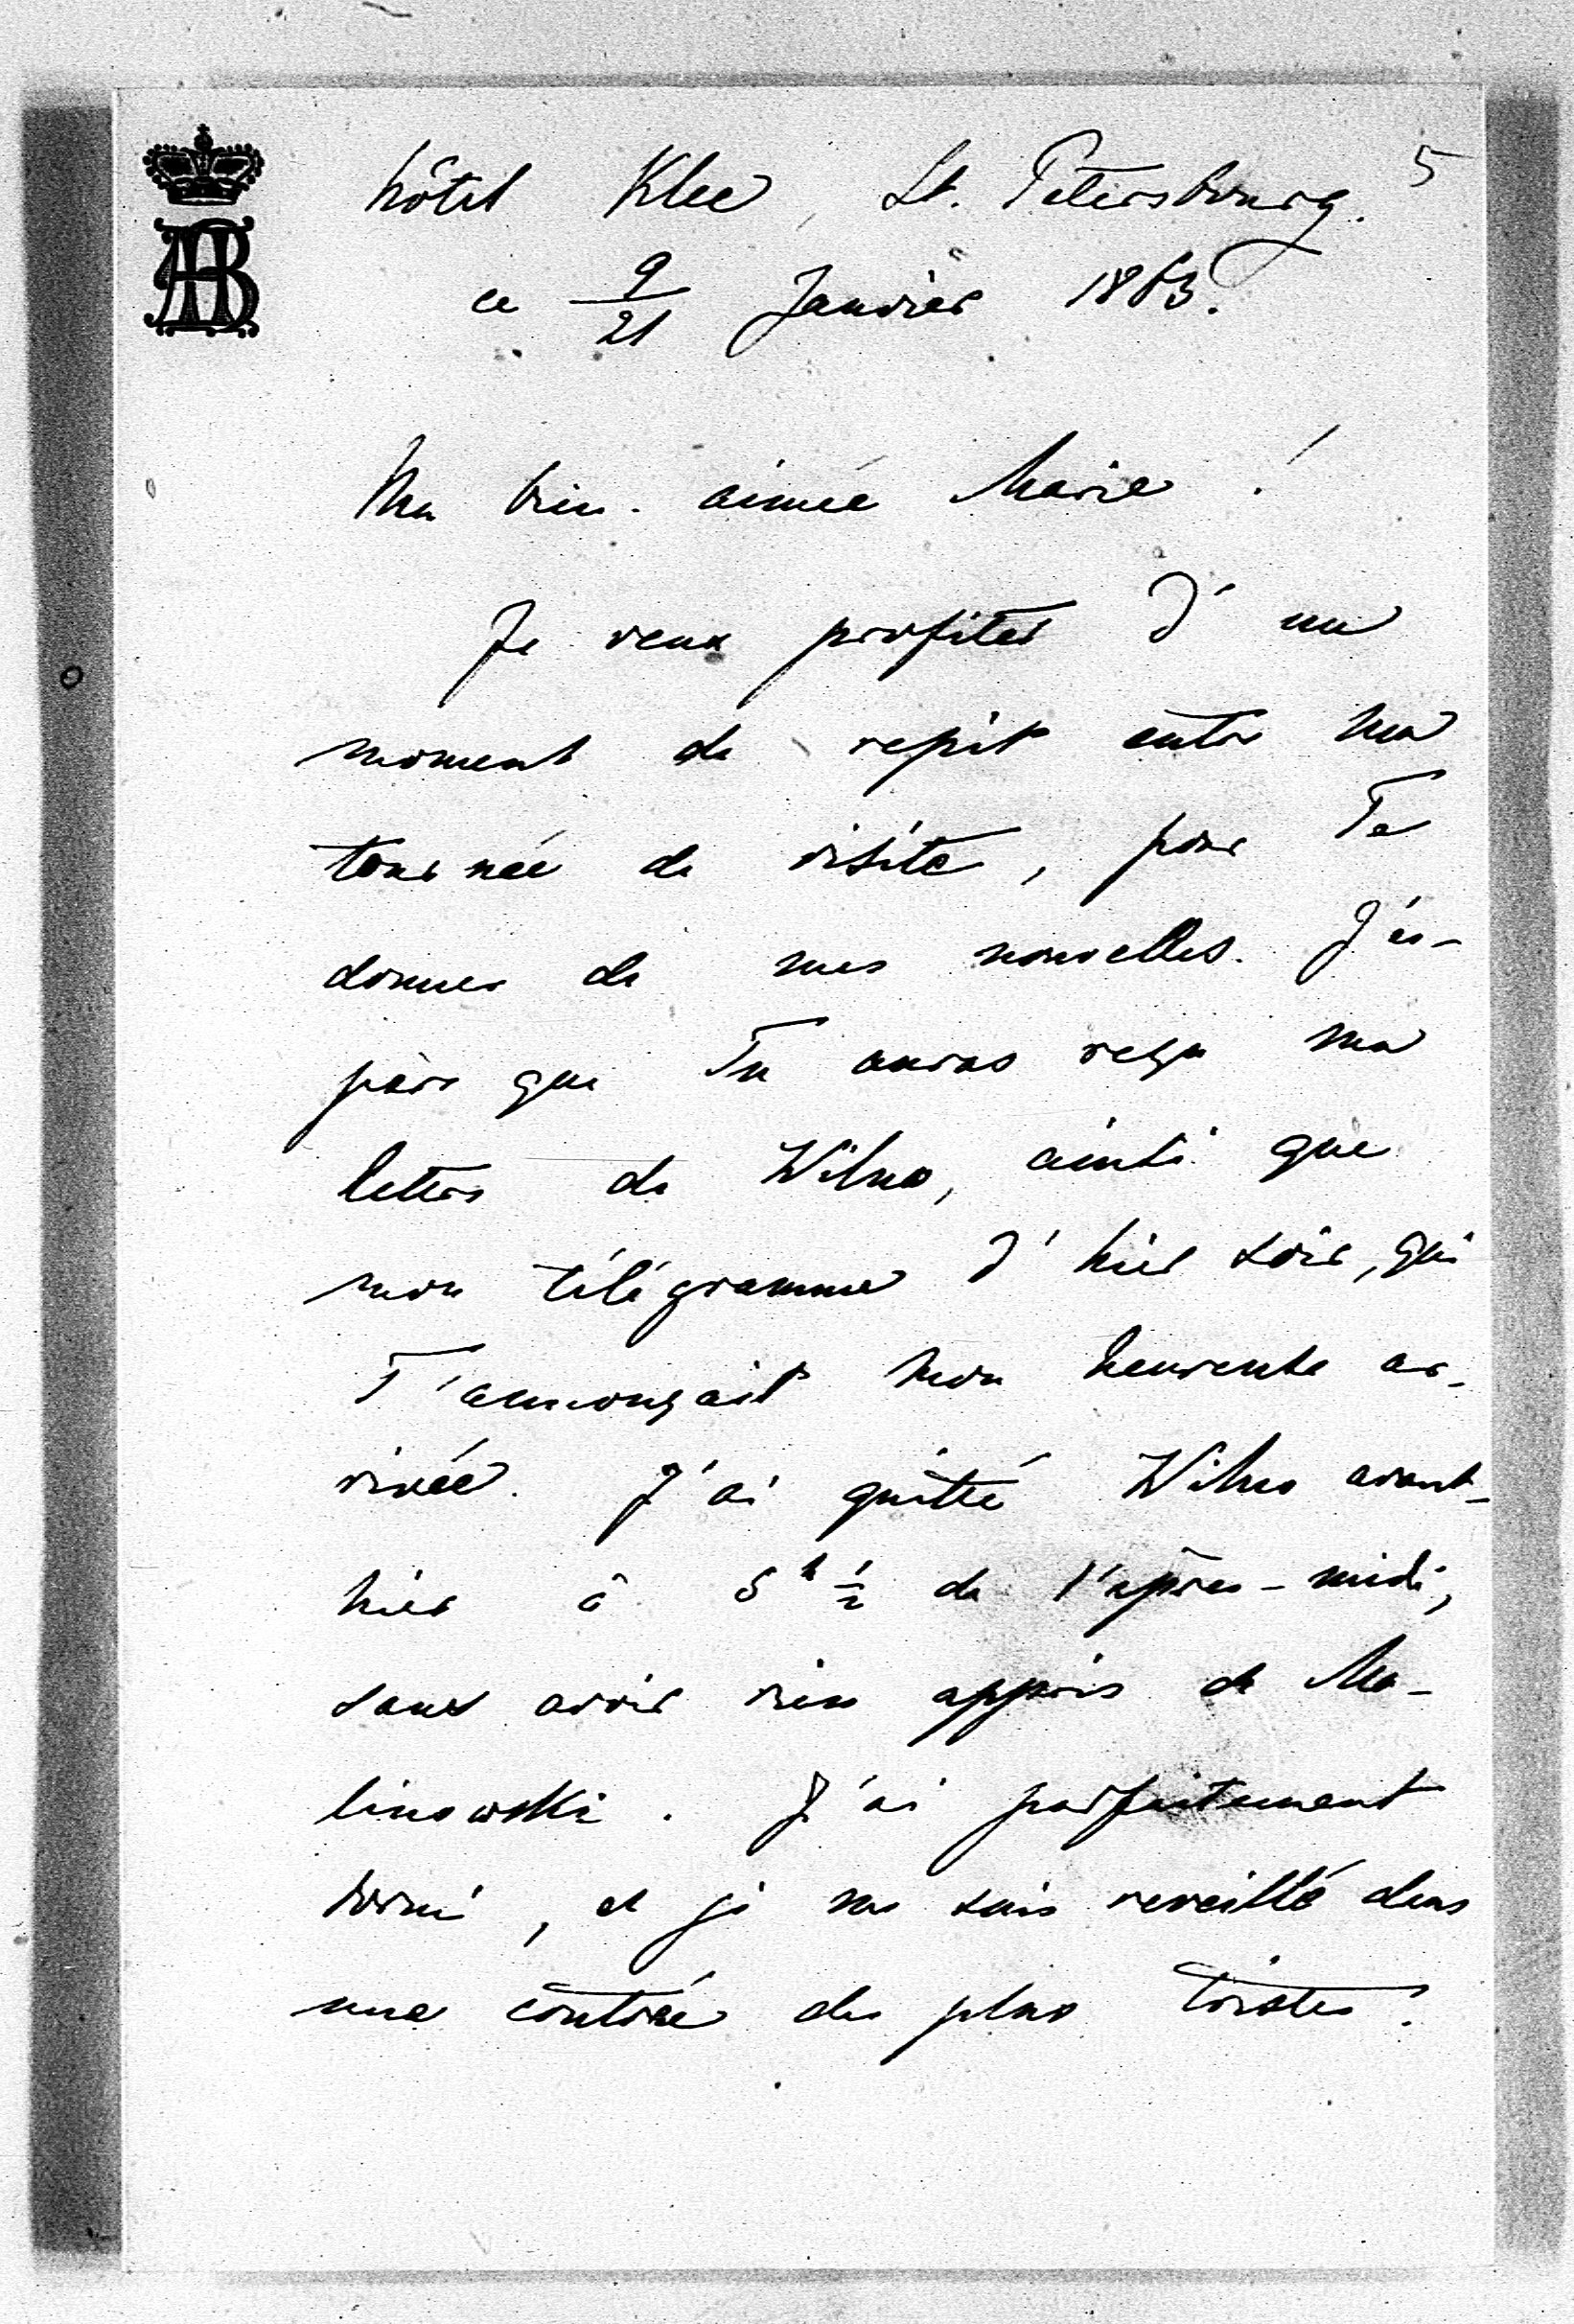 5
hôtel Klee, St. Petersbourg.
ce 9/21 Janvier 1863.
Ma bien-aimée Marie!
Je veux profiter d'un
moment de repit entre ma
tournée de visite, pour Te
donner de mes nouvelles. J'es-
père que Tu auras reçu ma
lettre de Wilno, ainsi que
mon télégramme d'hier soir, qui
T'annonçait mon heureuse ar-
rivée. J'ai quitté Wilno avant-
hier à 5 h ½ de l'après-midi,
sans avoir rien appris de Ma-
linowski. J'ai parfaitement
dormi, et je me suis reveillé dans
une contrée des plus tristes.